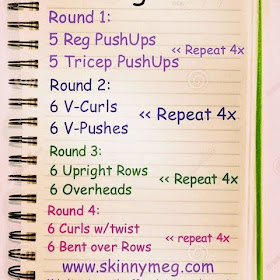 Round 1:
5 Reg PushUps
<< Repeat 4x
5 Tricep PushUps
Round 2:
6 V-Curls
<< Repeat 4x
6 V-Pushes
Round 3:
6 Upright Rows
<< Repeat 4x
6 Overheads
Round 4:
6 Curls w/twist
<< repeat 4x
6 Bent over Rows
www.skinnymeg.com